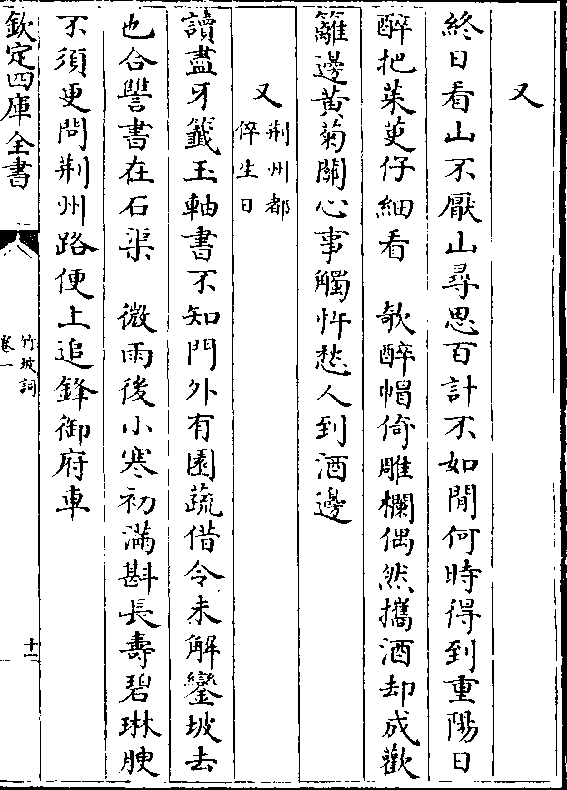 又
終日看山不厭山尋思百計不如閒何時得到重陽日
醉把茱萸仔細看　欹醉帽倚雕欄偶然攜酒却成歡
籬邊黄菊關心事觸忤愁人到酒邊
又荆州都倅生日
讀盡牙籤玉軸書不知門外有園蔬借令未解鑾坡去
也合讐書在石渠　微雨後小寒初滿斟長壽碧琳腴
不須更問荆州路便上追鋒御府車
欽定四庫全書
竹坡詞
卷一
十二